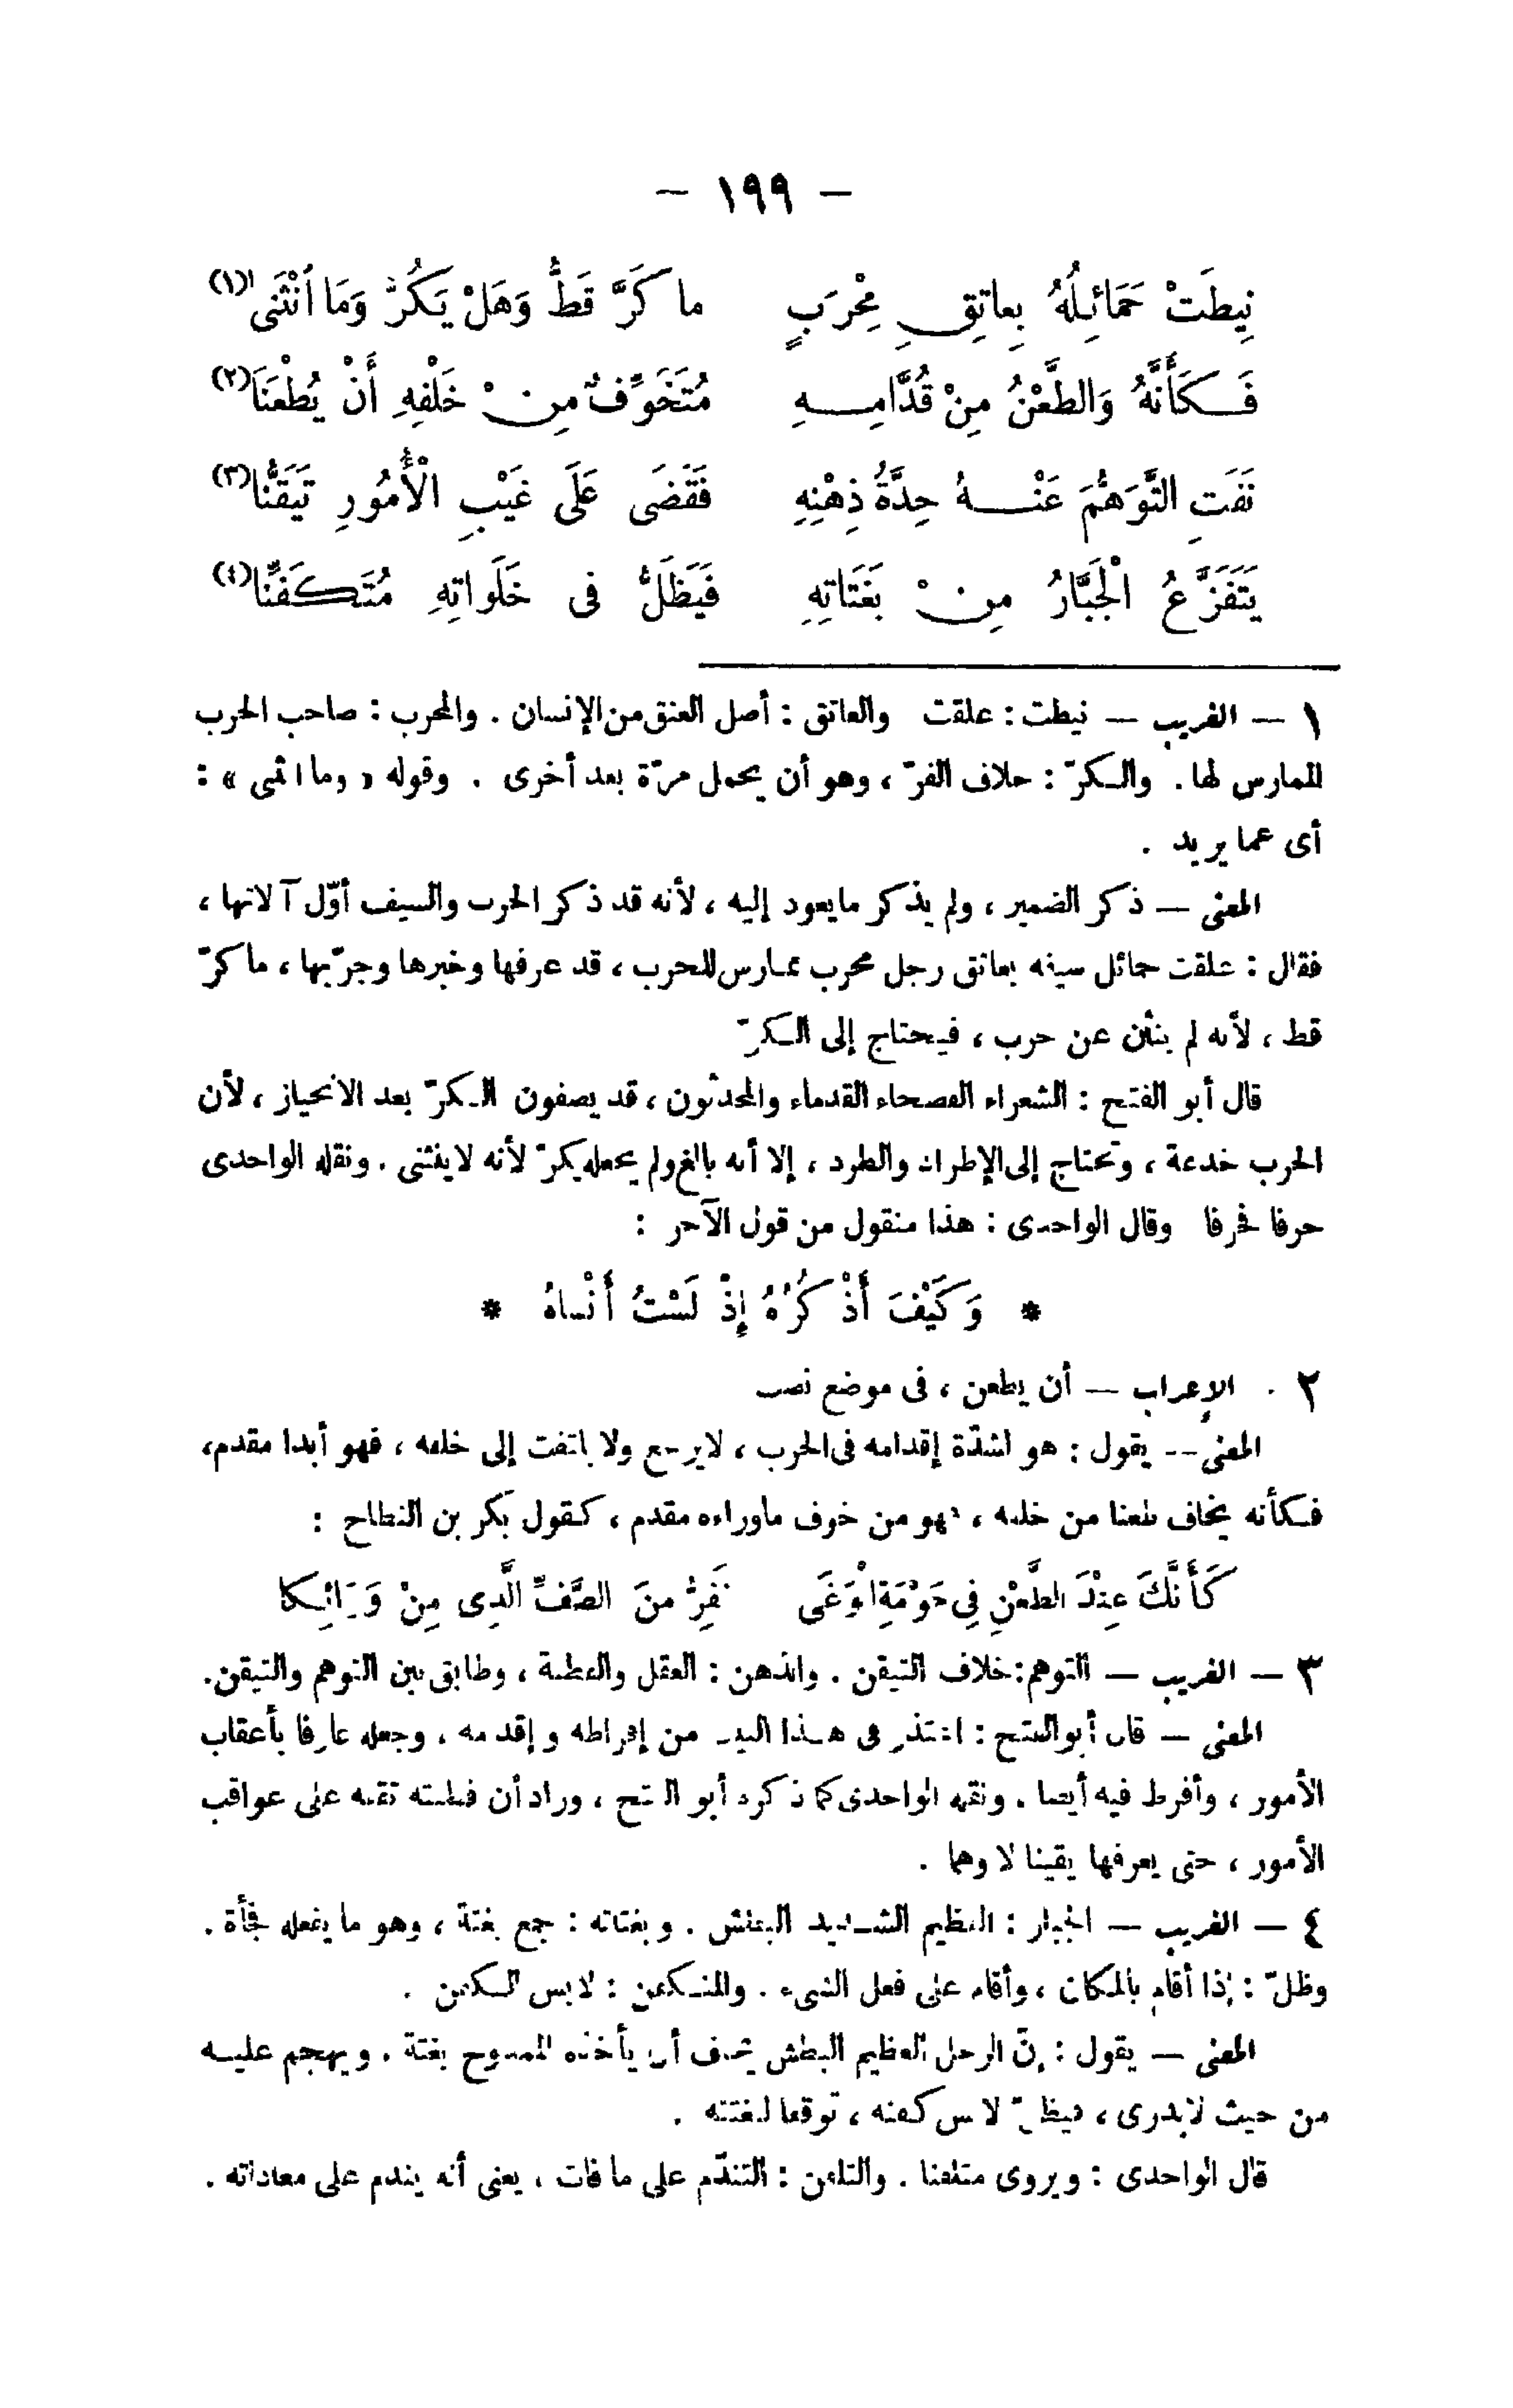 – ١٩٩ –
نِيطَتْ حَمَائِلُهُ بِعاتِقِ مِحْرَبٍ ما كَرَّ قَطُّ وَهَلْ يَكُرُّ وَمَا أنْثَنى (١)
فَكَأَنَّهُ وَالطَّعْنُ مِنْ قُدَّامِهِ مُتَخَوِّفٌ مِنْ خَلْفِهِ أَنْ يُطْعَنَا (٢)
نَفَتِ التَّوَهُّمَ عَنْهُ حِدَّةُ ذِهْنِهِ فَقَضَى عَلَى غَيْبِ الْأُمُورِ تَيَقُّنا (٣)
يَتَفَزَّعُ الْجَبَّارُ مِنْ بَغَتَاتِهِ فَيَظَلُّ فى خَلَواتِهِ مُتَكَفِّنا (٤)
١ – الغريب – نيطت : علقت والعاتق : أصل العنق من الإنسان . والمحرب : صاحب الحرب
الممارس لها . والكرّ : خلاف الفرّ ، وهو أن يحمل مرّة بعد أخرى . وقوله « وما انثنى » :
أى عما يريد .
المعنى – ذكر الضمير ، ولم يذكر مايعود إليه ، لأنه قد ذكر الحرب والسيف أوّل آلاتها ،
فقال : علقت حمائل سيفه بعاتق رجل محرب ممارس للحرب ، قد عرفها وخبرها وجرّبها ، ما كرّ
قط ، لأنه لم ينثن عن حرب ، فيحتاج إلى الكرّ
قال أبو الفتح : الشعراء الفصحاء القدماء والمحدثون ، قد يصفون الكرّ بعد الانحياز ، لأن
الحرب خدعة ، وتحتاج إلى الإطراد والطرد ، إلا أنه بالغ ولم يجعله يكرّ لأنه لاينثنى . ونقله الواحدى
حرفا فحرفا وقال الواحدى : هذا منقول من قول الآخر :
* وَكَيْفَ أَذْكُرُهُ إِذْ لَسْتُ أَنْساهُ *
٢ . الإعراب – أن يطعن ، فى موضع نصب
المعنى -- يقول : هو لشدّة إقدامه فى الحرب ، لايرجع ولا يلتفت إلى خلفه ، فهو أبدا مقدم،
فكأنه يخاف طعنا من خلفه ، فهو من خوف ماوراءه مقدم ، كقول بكر بن النطاح :
كَأَنَّكَ عِنْدَ الطَّعْنِ فِى حَوْمَةِ الْوَغَى تَفِرُّ مِنَ الصَّفِّ الَّذِى مِنْ وَرَائِكا
٣ – الغريب – التوهم : خلاف التيقن . والذهن : العقل والفطنة ، وطابق بين التوهم والتيقن.
المعنى – قال أبو الفتح : اعتذر فى هذا البيت من إفراطه وإقدامه ، وجعله عارفا بأعقاب
الأمور ، وأفرط فيه أيضا . ونقله الواحدى كما ذكره أبو الفتح ، وزاد أن فطنته تقفه على عواقب
الأمور ، حتى يعرفها يقينا لا وهما .
٤ – الغريب – الجبار : العظيم الشديد البطش . وبغتاته : جمع بغتة ، وهو ما يفعله فجأة .
وظلّ : إذا أقام بالمكان ، وأقام على فعل الشىء . والمتكفن : لابس الكفن .
المعنى – يقول : إنّ الرجل العظيم البطش يخاف أن يأخذه الممدوح بغتة . ويهجم عليه
من حيث لايدرى ، فيظلّ لابس كفنه ، توقعا لبغتته .
قال الواحدى : ويروى متلفنا . والتلفن : التندّم على ما فات ، يعنى أنه يندم على معاداته .